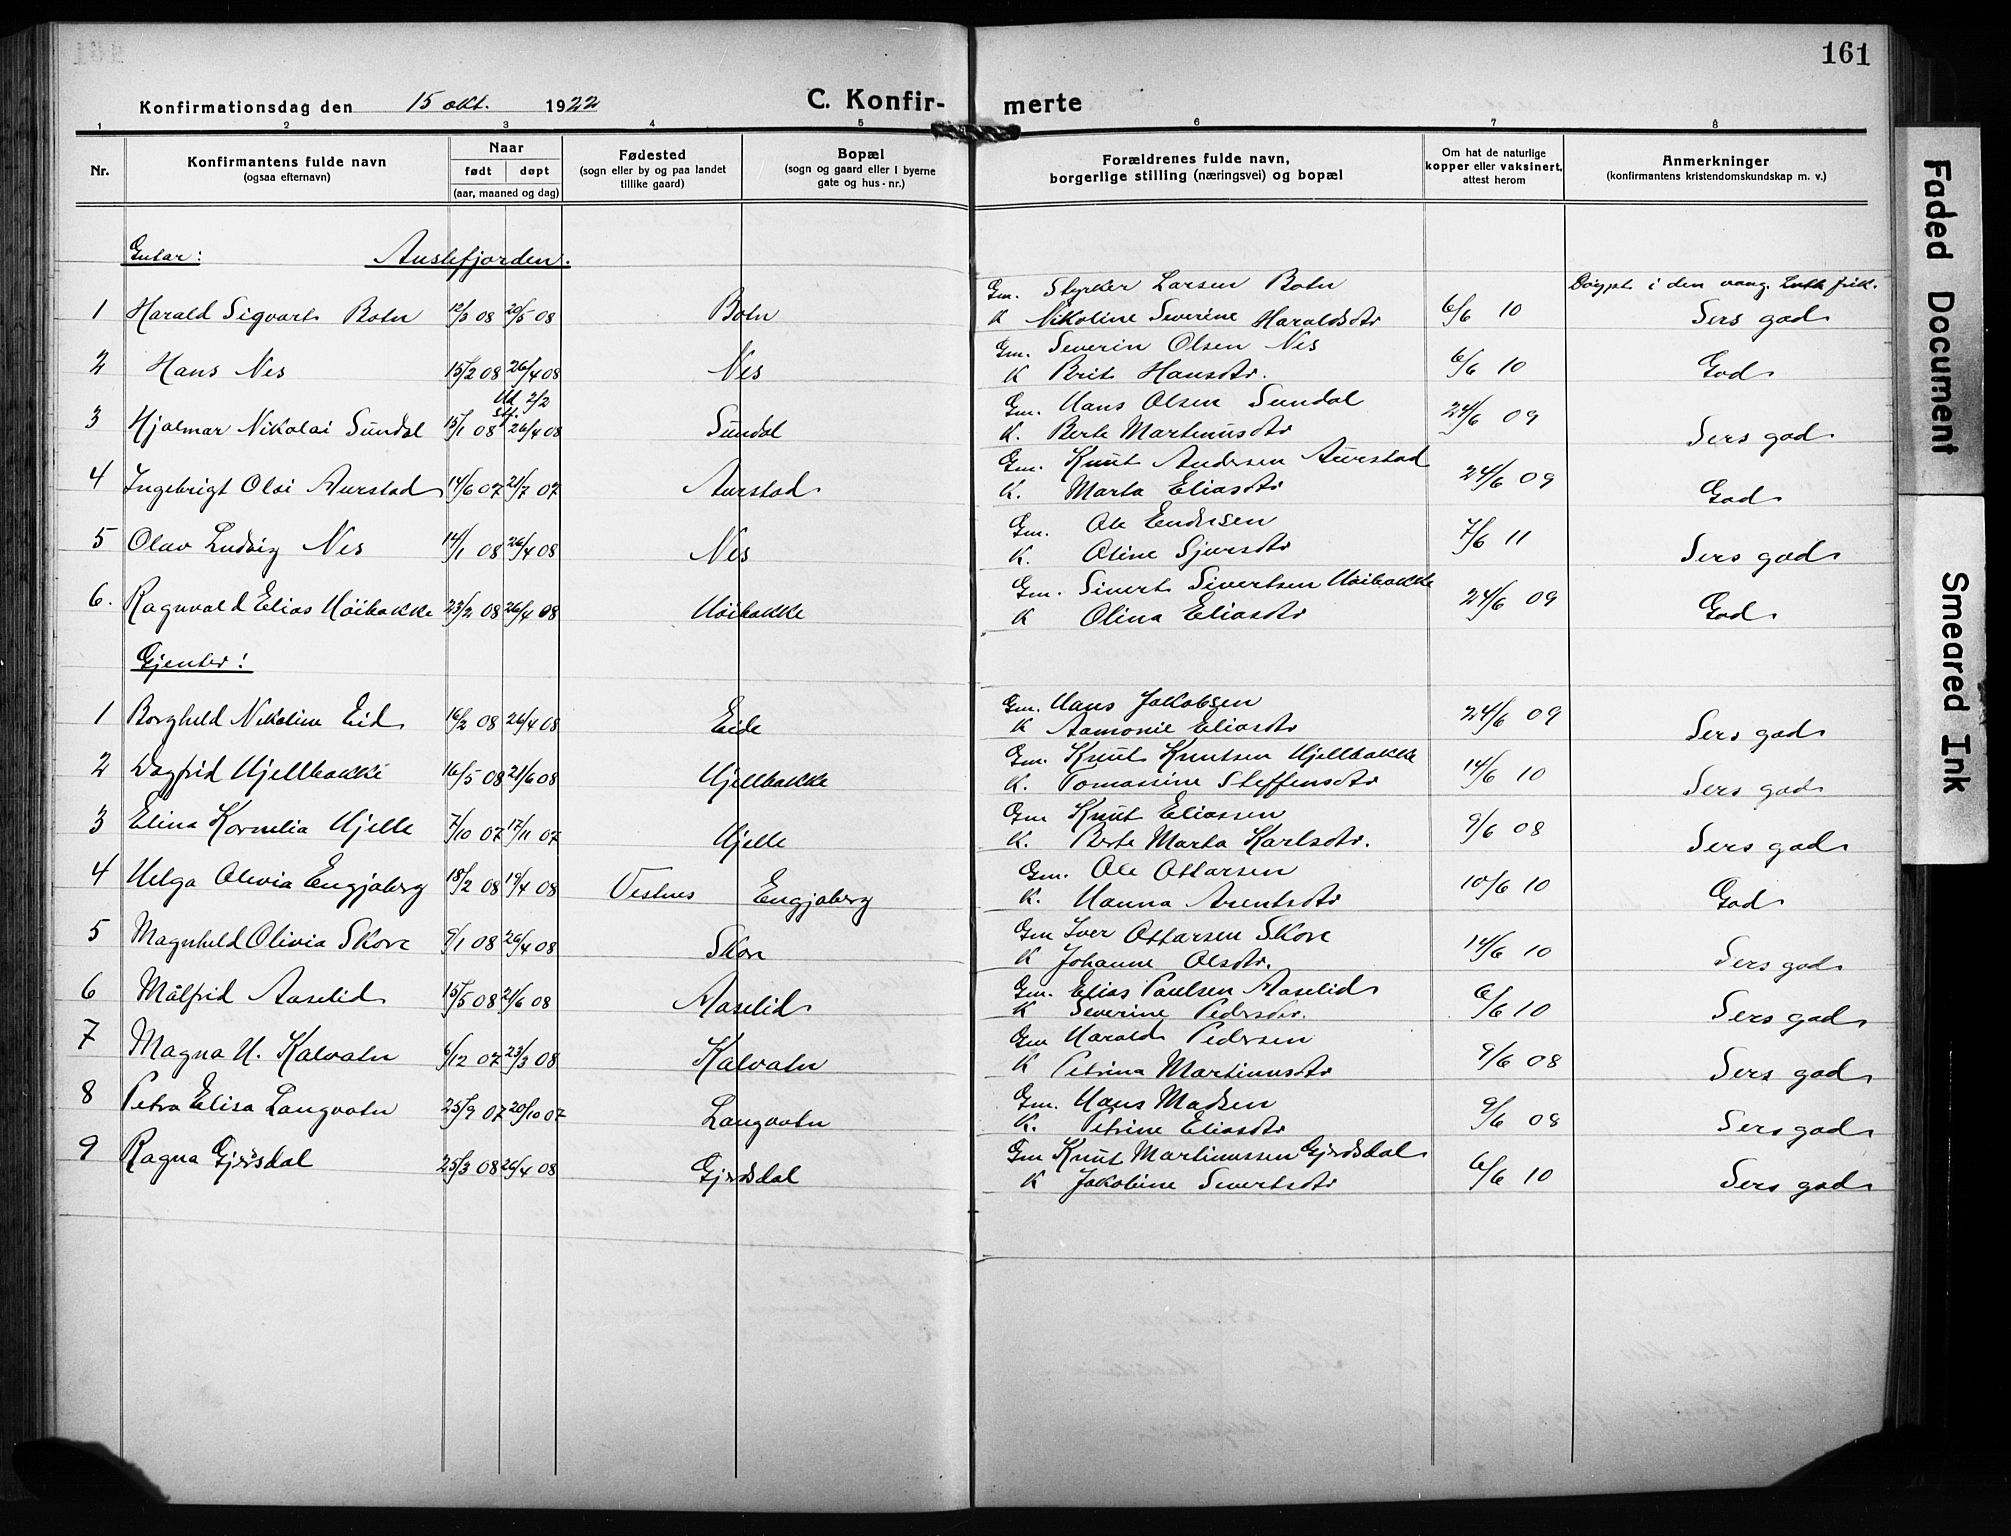 161
Konfirmationsdag den 15 okt. 1922 C. Konfir- merte
1 2 3 4 5 6 7 8
Nr. Konfirmantens fulde navn (ogsaa efternavn) Naar født døpt (aar, maaned og dag) Fødested (sogn eller by og paa landet tillike gaard) Bopæl (sogn og gaard eller i byerne gate og hus-nr.) Forældrenes fulde navn, borgerlige stilling (næringsvei) og bopæl Om hat de naturlige kopper eller vaksinert, attest herom Anmerkninger (konfirmantens kristendomskundskap m. v.)
Gutar: Austefjorden.
Gm. Styrker Larsen Botn Døypt i den vang. Luth frik.
1 Harald Sigvart Botn 12/3 08 20/5 08 Botn K Nikoline Severine Haraldsdtr 6/6 10 Sers god
Gm. Severin Olsen Nes
2 Hans Nes 15/2 08 26/4 08 Nes K Brit Hansdtr. 6/6 10 God
2/2
Gm. Hans Olsen Sundal
3 Hjalmar Nikolai Sundal 15/1 08 26/4 08 Sundal K. Berte Martinusdtr 24/6 09 Sers god
Gm. Knut Andersen Aurstad
4 Ingebrigt Olai Aurstad 14/6 07 21/7 07 Aurstad K. Marta Eliasdtr 24/6 09 God
Gm. Ole Endresen
5 Olav Ludvig Nes 14/1 08 26/4 08 Nes K. Oline Sjursdtr 7/6 11 Sers god
Gm. Sivert Sivertsen Höibakke
6. Ragnvald Elias Höibakke 23/2 08 26/4 08 Höibakke K Olina Eliasdtr 24/6 09 God
Gjenter:
Gm. Hans Jakobsen
1 Borghild Nikoline Eid 16/2 08 26/4 08 Eide K Aamonie Eliasdtr 24/6 09 Sers god
Gm. Knut Knutsen Hjellbakke
2 Dagfrid Hjellbakke 16/5 08 21/6 08 Hjellbakke K. Tomassine Steffensdtr 14/6 10 Sers god
Gm Knut Eliassen
3 Elina Kornelia Hjelle 7/10 07 17/11 07 Hjelle K. Berte Marta Karlsdtr. 9/6 08 Sers god
Gm. Ole Ottarsen
4 Helga Olivia Engjaberg 18/2 08 19/4 08 Vestnes Engjaberg K. Hanna Arentsdtr 10/6 10 God
Gm Iver Ottarsen Skore
5 Magnhild Olivia Skore 9/1 08 26/4 08 Skore K Johanne Olsdtr. 14/6 10 Sers god
Gm. Elias Paulsen Aaselid
6 Målfrid Aaselid 15/5 08 21/6 08 Aaselid K Severine Pedersdtr. 6/6 10 Sers god
Gm Harald Pedersen
7 Magna H. Kalvatn 6/12 07 23/3 08 Kalvatn K Petrina Martinusdtr 9/6 08 Sers god
Gm. Hans Madsen
8 Petra Elisa Langvatn 25/9 07 20/10 07 Langvatn K. Petrine Eliasdtr 9/6 08 Sers god
Gm Knut Martinussen Gjerdsdal
9 Ragna Gjersdal 25/3 08 26/4 08 Gjerdsdal K Jakobine Sivertsdtr 6/6 10 Sers god
Faded Document
Smeared Ink